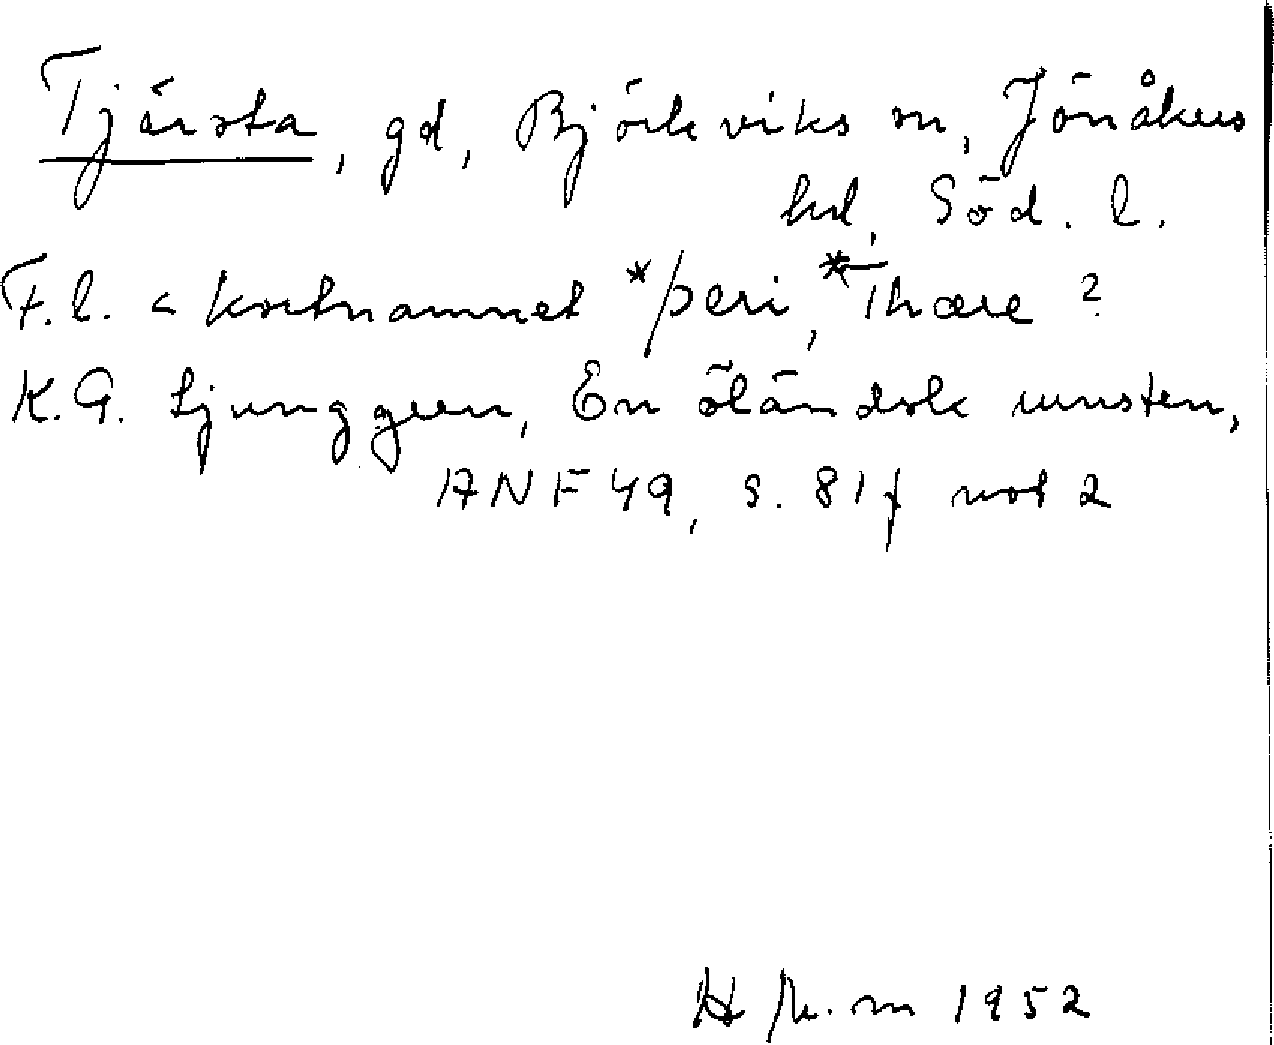 Tjärsta, gd, Björkviks sn, Jönåkers
hd, Söd. l.
F.l. < kortnamnet *þeri, *Thære ?
K.G. Ljunggren, En öländsk runsten,
ANF 49, s. 81 f not 2
1952